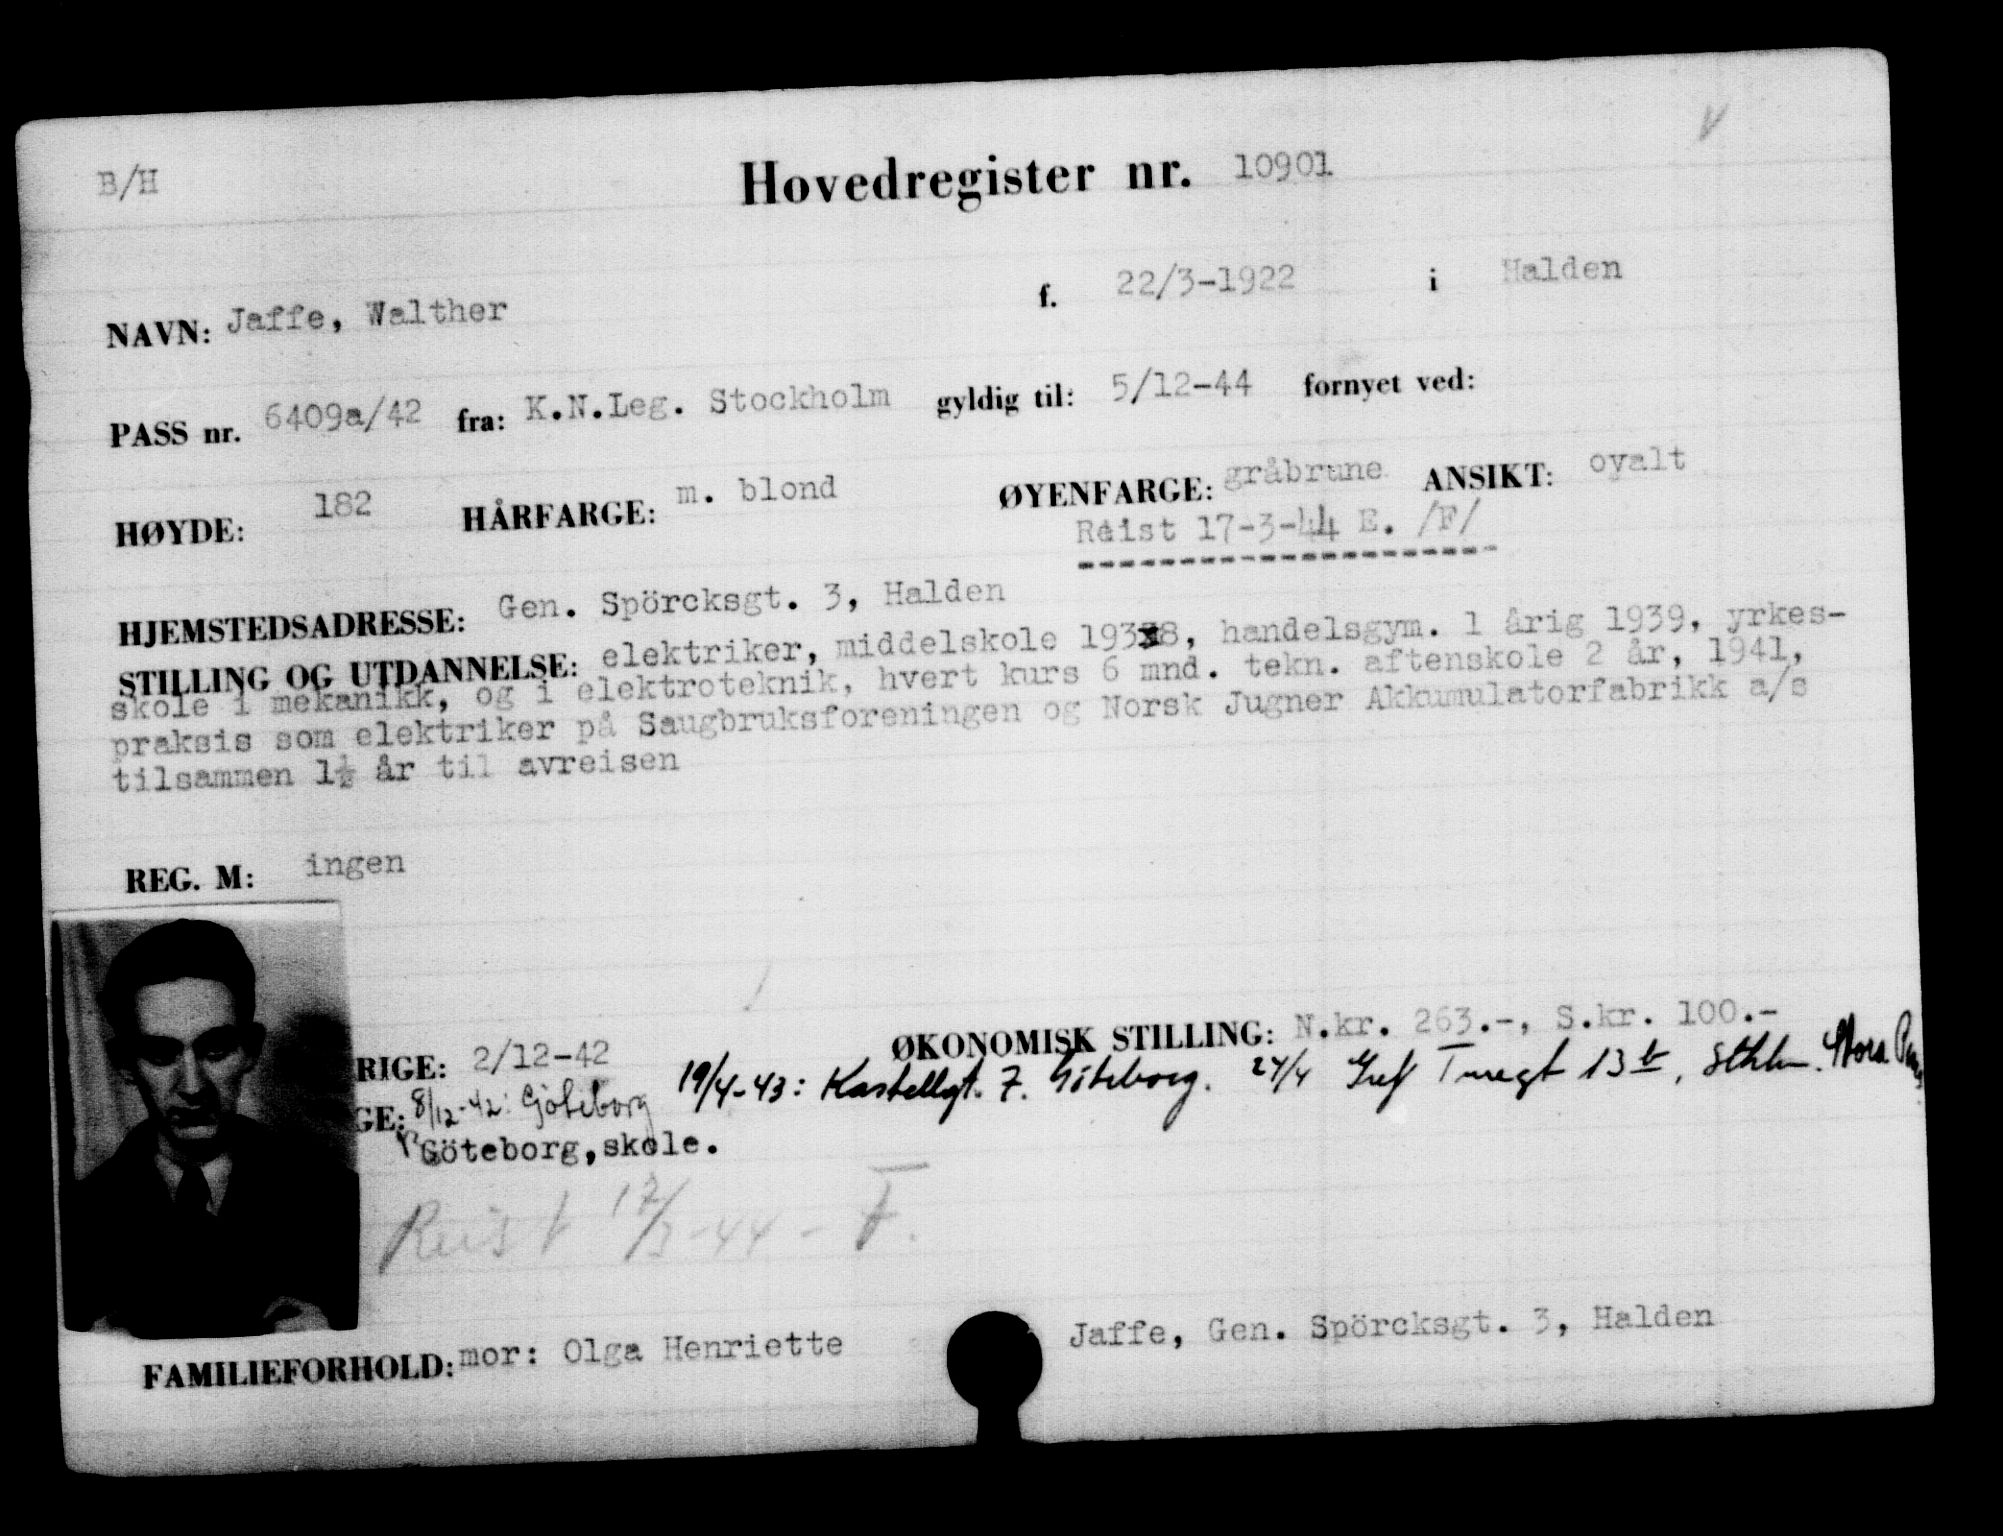 B/H
Hovedregister nr. 10901
NAVN: Jaffe, Walther f. 22/3-1922 i Halden
PASS nr. 6409a/42 fra: K.N.Leg. Stockholm gyldig til: 5/12-44 fornyet ved:
HØYDE: 182 HÅRFARGE: m. blond ØYENFARGE: gråbrune ANSIKT: ovalt
Reist 17-3-44 E. /F/
HJEMSTEDSADRESSE: Gen. Spörcksgt. 3, Halden
STILLING OG UTDANNELSE: elektriker, middelskole 1938, handelsgym. 1 årig 1939, yrkes-
skole i mekanikk, og i elektroteknik, hvert kurs 6 mnd. tekn. aftenskole 2 år, 1941,
praksis som elektriker på Saugbruksforeningen og Norsk Jugner Akkumulatorfabrikk a/s
tilsammen 1½ år til avreisen
REG. M: ingen
RIGE: 2/12-42 ØKONOMISK STILLING: N.kr. 263.-, S.kr. 100.-
GE: 8/12-42: Göteborg 19/4-43: Kastellgt. 7. Göteborg. 24/4 Gref Turegt 13 b, Sthlm.
Göteborg, skole.
Reist 17/3-44 - F.
FAMILIEFORHOLD: mor: Olga Henriette Jaffe, Gen. Spörcksgt. 3, Halden